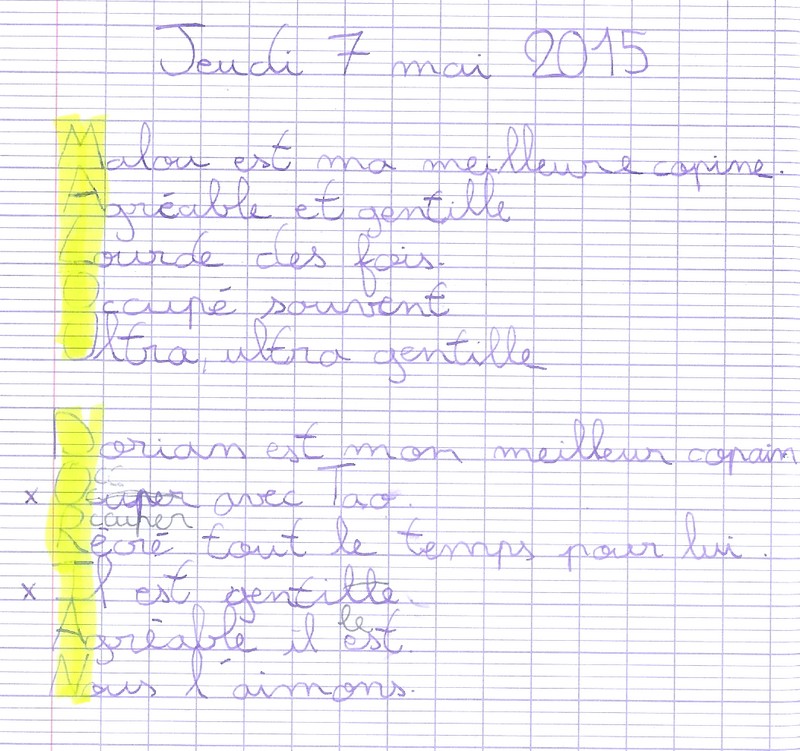 Jeudi 7 mai 2015
Malou est ma meilleure copine.
Agréable et gentille
Lourde des fois.
Occupé souvent
Ultra, ultra gentille
Dorian est mon meilleur copain
cc
x Occuper avec Tao.
Occuper
Récré tout le temps pour lui.
x Il est gentille.
le
Agréable il est.
Nous l'aimons.